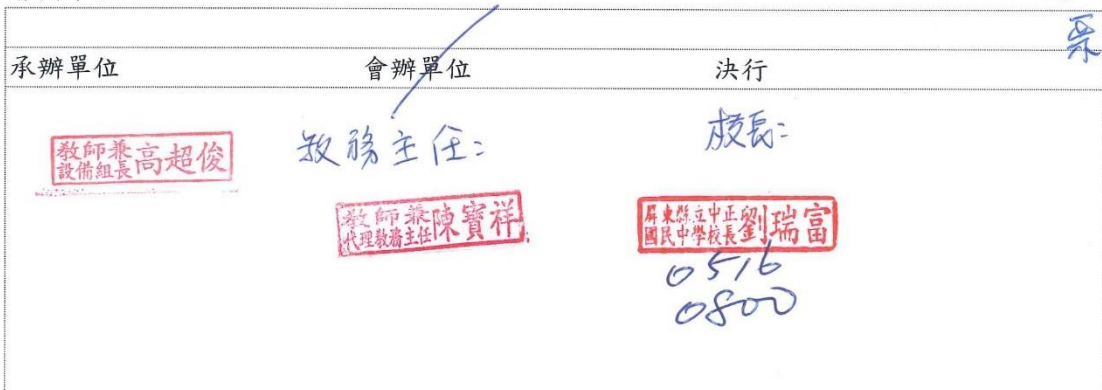 承辦單位 會辦單位 決行
教師兼
設備組長 高超俊
教務主任:
教師兼
代理教務主任 陳寶祥
校長:
屏東縣立中正
國民中學校長 劉瑞富
0516
0800